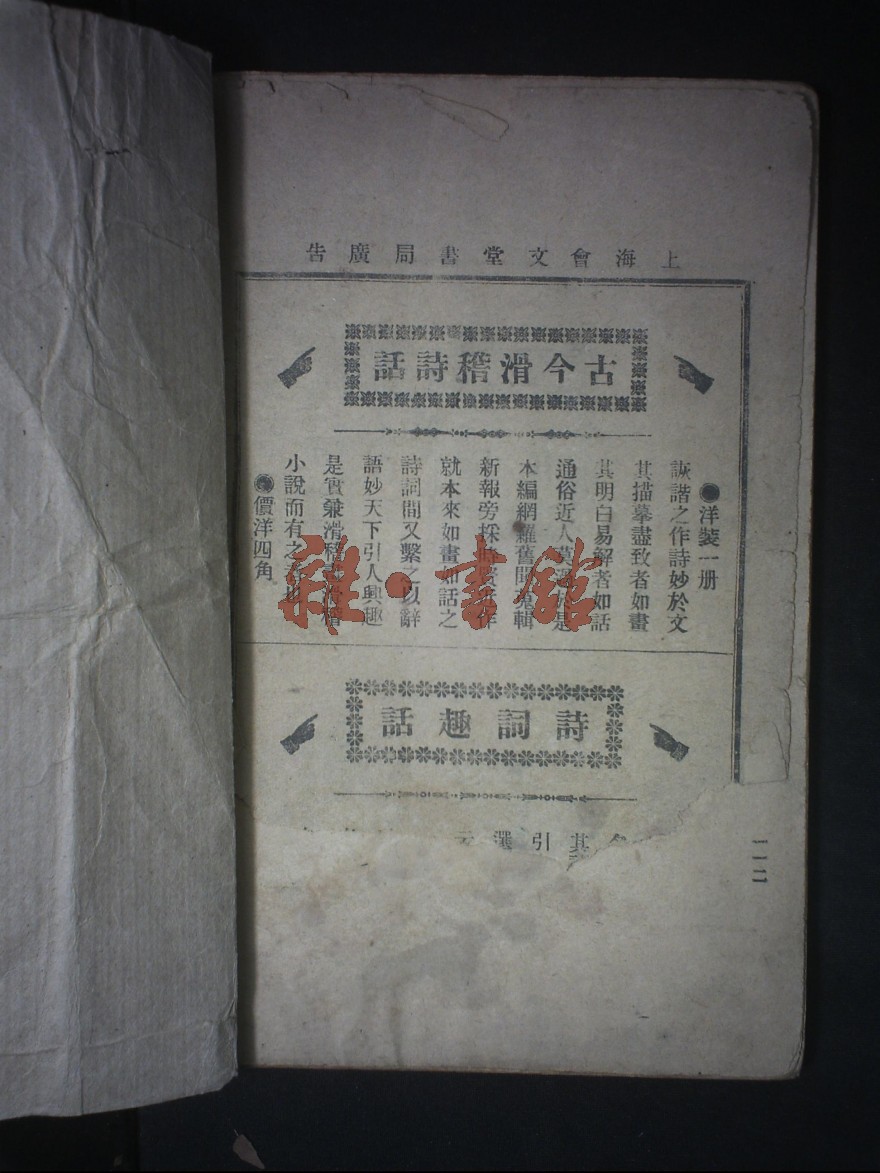 上海會文堂書局廣告
古今滑稽詩話
●洋裝一册
詼諧之作詩妙於文
其描摹盡致者如畫
其明白易解者如話
通俗近人莫 是
本編網羅舊聞蒐輯
新報旁採時賢 作
就本來如畫如話之
詩詞間又繫之以辭
語妙天下引人興趣
是實兼滑稽 滑稽
小說而有之
●價洋四角
雜·書館
詩詞趣話
其
引
選
二二